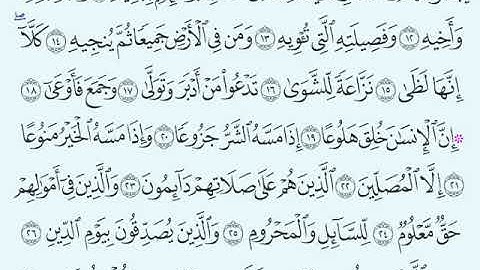 وَأَخِيهِ ١٢ وَفَصِيلَتِهِ ٱلَّتِي تُـْٔوِيهِ ١٣ وَمَن فِي ٱلْأَرْضِ جَمِيعًا ثُمَّ يُنجِيهِ ١٤ كَلَّآ
إِنَّهَا لَظَىٰ ١٥ نَزَّاعَةً لِّلشَّوَىٰ ١٦ تَدْعُوا۟ مَنْ أَدْبَرَ وَتَوَلَّىٰ ١٧ وَجَمَعَ فَأَوْعَىٰٓ ١٨
إِنَّ ٱلْإِنسَٰنَ خُلِقَ هَلُوعًا ١٩ إِذَا مَسَّهُ ٱلشَّرُّ جَزُوعًا ٢٠ وَإِذَا مَسَّهُ ٱلْخَيْرُ مَنُوعًا
٢١ إِلَّا ٱلْمُصَلِّينَ ٢٢ ٱلَّذِينَ هُمْ عَلَىٰ صَلَاتِهِمْ دَآئِمُونَ ٢٣ وَٱلَّذِينَ فِيٓ أَمْوَٰلِهِمْ
حَقٌّ مَّعْلُومٌ ٢٤ لِّلسَّآئِلِ وَٱلْمَحْرُومِ ٢٥ وَٱلَّذِينَ يُصَدِّقُونَ بِيَوْمِ ٱلدِّينِ ٢٦